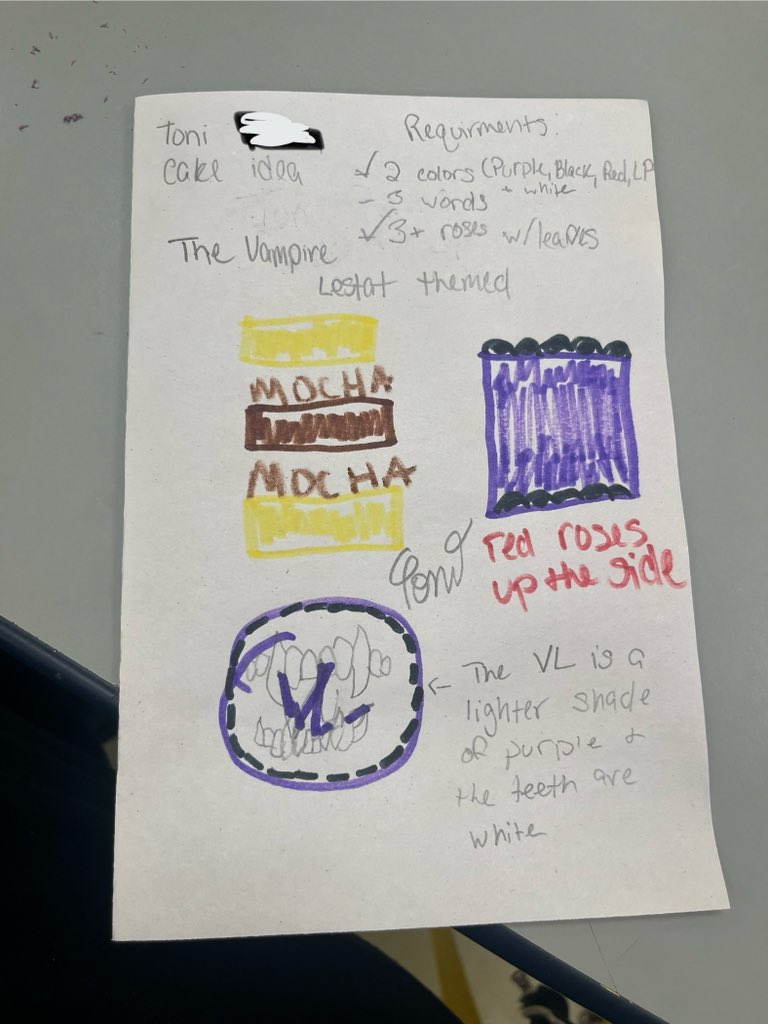 Toni
cake idea
Requirments:
✓ 2 colors (Purple, Black, Red, LP
+ white
- 3 words
✓ 3+ roses w/leaves
The Vampire
Lestat themed
MOCHA
MOCHA
Toni
red roses
up the side
VL
← The VL is a
lighter shade
of purple +
the teeth are
white